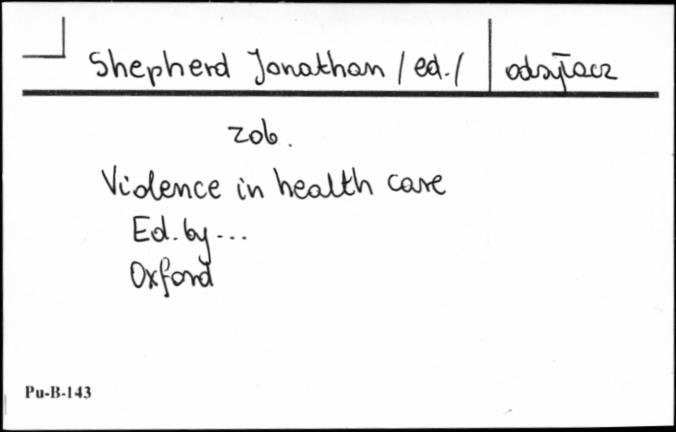 Shepherd Jonathan /ed./ odsyłacz
zob.
Violence in health care
Ed. by...
Oxford
Pu-B-143